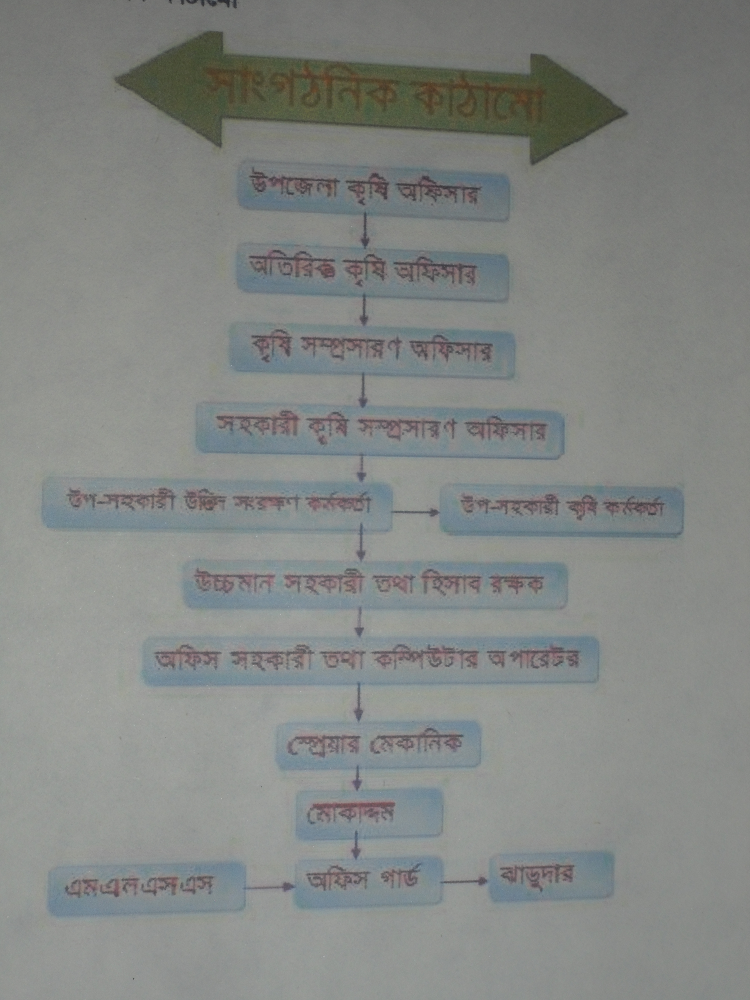 সাংগঠনিক কাঠামো
উপজেলা কৃষি অফিসার
অতিরিক্ত কৃষি অফিসার
কৃষি সম্প্রসারণ অফিসার
সহকারী কৃষি সম্প্রসারণ অফিসার
উপ-সহকারী উদ্ভিদ সংরক্ষণ কর্মকর্তা উপ-সহকারী কৃষি কর্মকর্তা
উচ্চমান সহকারী তথা হিসাব রক্ষক
অফিস সহকারী তথা কম্পিউটার অপারেটর
স্প্রেয়ার মেকানিক
মোকাদ্দম
এমএলএসএস অফিস গার্ড ঝাড়ুদার